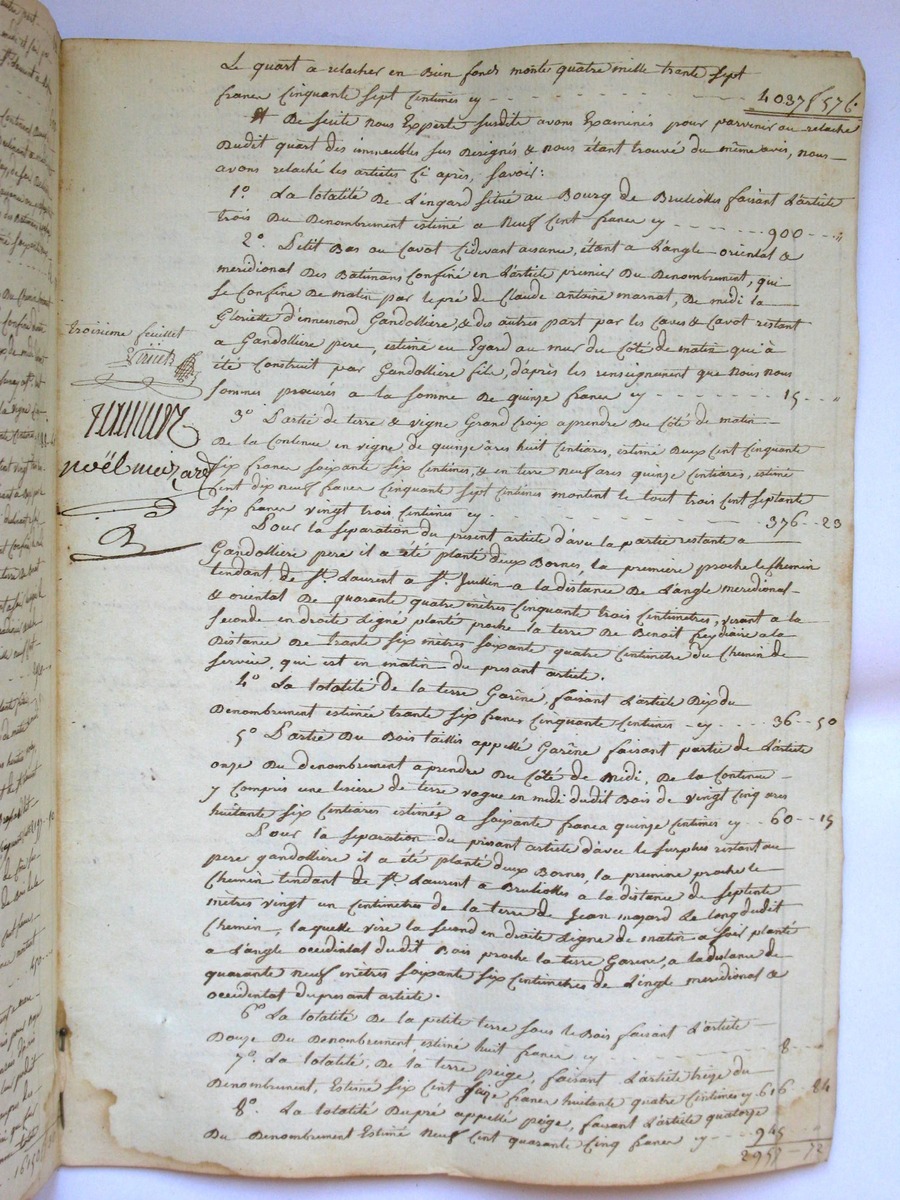 Le quart a relacher en Bien fonds monte quatre mille trante sept
francs Cinquante sept Centimes cy - - - 4037ᶠ 57ᶜ
De suite nous Experts susdits avons Examinés pour parvenir au relache
Dudit quart des immeubles sus Désignés & nous étant trouvé du même avis, nous
avons relaché les articles Ci après, savoir:
1º. La totalité De Lingard située au Bourg de Brulioles faisant L'article
trois Du Denombrement estimé a Neuf Cent francs cy - - - 900 - - "
2º. Petit Bas au Cavot Cidevant avance, étant a L'angle oriental &
meridional Des Batimans Confiné en L'article premier Du Denombrement, qui
se Confine De matin par le pré de Claude antoine marnat, De midi la
Gloriette d'ennemond Gandolliere, & des autres part par les Caves & Cavot restant
a Gandolliere pere, estimé eu Egard au mur du Côté de matin qui à
été Construit par Gandolliere fils, d'après les renseignement que Nous nous
sommes procurés a la somme De quinze francs cy - - - 15 - - "
troisieme feuillet
noël
3º Partie de terre & vigne Grand Croix aprendre Du Côté de matin
De la Contenue en vigne, de quinze ares huit Centiares, estimé Deux Cent Cinquante
six francs soixante six Centimes, & en terre neuf ares quinze Centiares, estimé
Cent dix neuf francs Cinquante sept Centimes montent le tout trois Cent septante
six francs vingt trois Centimes cy - - - 376 - - 23
Pour la separation du present article d'avec la partie restante a
Gandolliere pere il a été planté deux Bornes, la premiere proche le Chemin
tendant de St. Laurent a St. Jullien a la distance De L'angle meridional
& oriental De quarante quatre mètres Cinquante trois Centimetres, visant a la
seconde en droite Ligne planté proche la terre De Benoit a la
Distance De trante six mètres soixante quatre Centimetre du Chemin de
service, qui est en matin du presant article.
4º La totalité De la terre Garêne, faisant L'article Dix du
Denombrement estimée trante six francs Cinquante Centimes - cy - - 36 - - 50
5º Partie Du Bois taillis appellé Garêne faisant partie de L'article
onze Du denombrement a prendre Du Côté de Midi, De la Contenue
y Compris une lisiere de terre vague en midi dudit Bois de vingt Cinq ares
huitante six Centiares estimés a soixante francs quinze Centimes cy - - 60 - - 15
Pour la separation du presant article d'avec le surplus restant au
pere gandolliere il a été planté deux Bornes, la premiere proche le
Chemin tendant de St. Laurent a Brulioles a la distance de septente
mètres vingt un Centimetres de la terre de Jean mazard Le long dudit
Chemin, laquelle vise la second en droite Ligne de matin a soir planté
a L'angle occidental dudit Bois proche la terre Garene, a la distance de
quarante neuf mètres soixante six Centimetres de L'ingle meridional &
occidental du presant article.
6º La totalité De la petite terre sous le Bois faisant L'article
Douze Du Denombrement estimé huit francs cy - - - 8 - -
7º. La totalité, De la terre peige, faisant L'article treize du
Denombrement, Estimé Six Cent Seize francs huitante quatre Centimes cy 616 - 84
8º. La totalité Du pré appellé peige, faisant L'article quatorze
Du Denombrement Estimé Neuf Cent quarante Cinq francs cy - - - 945
2957 - 72